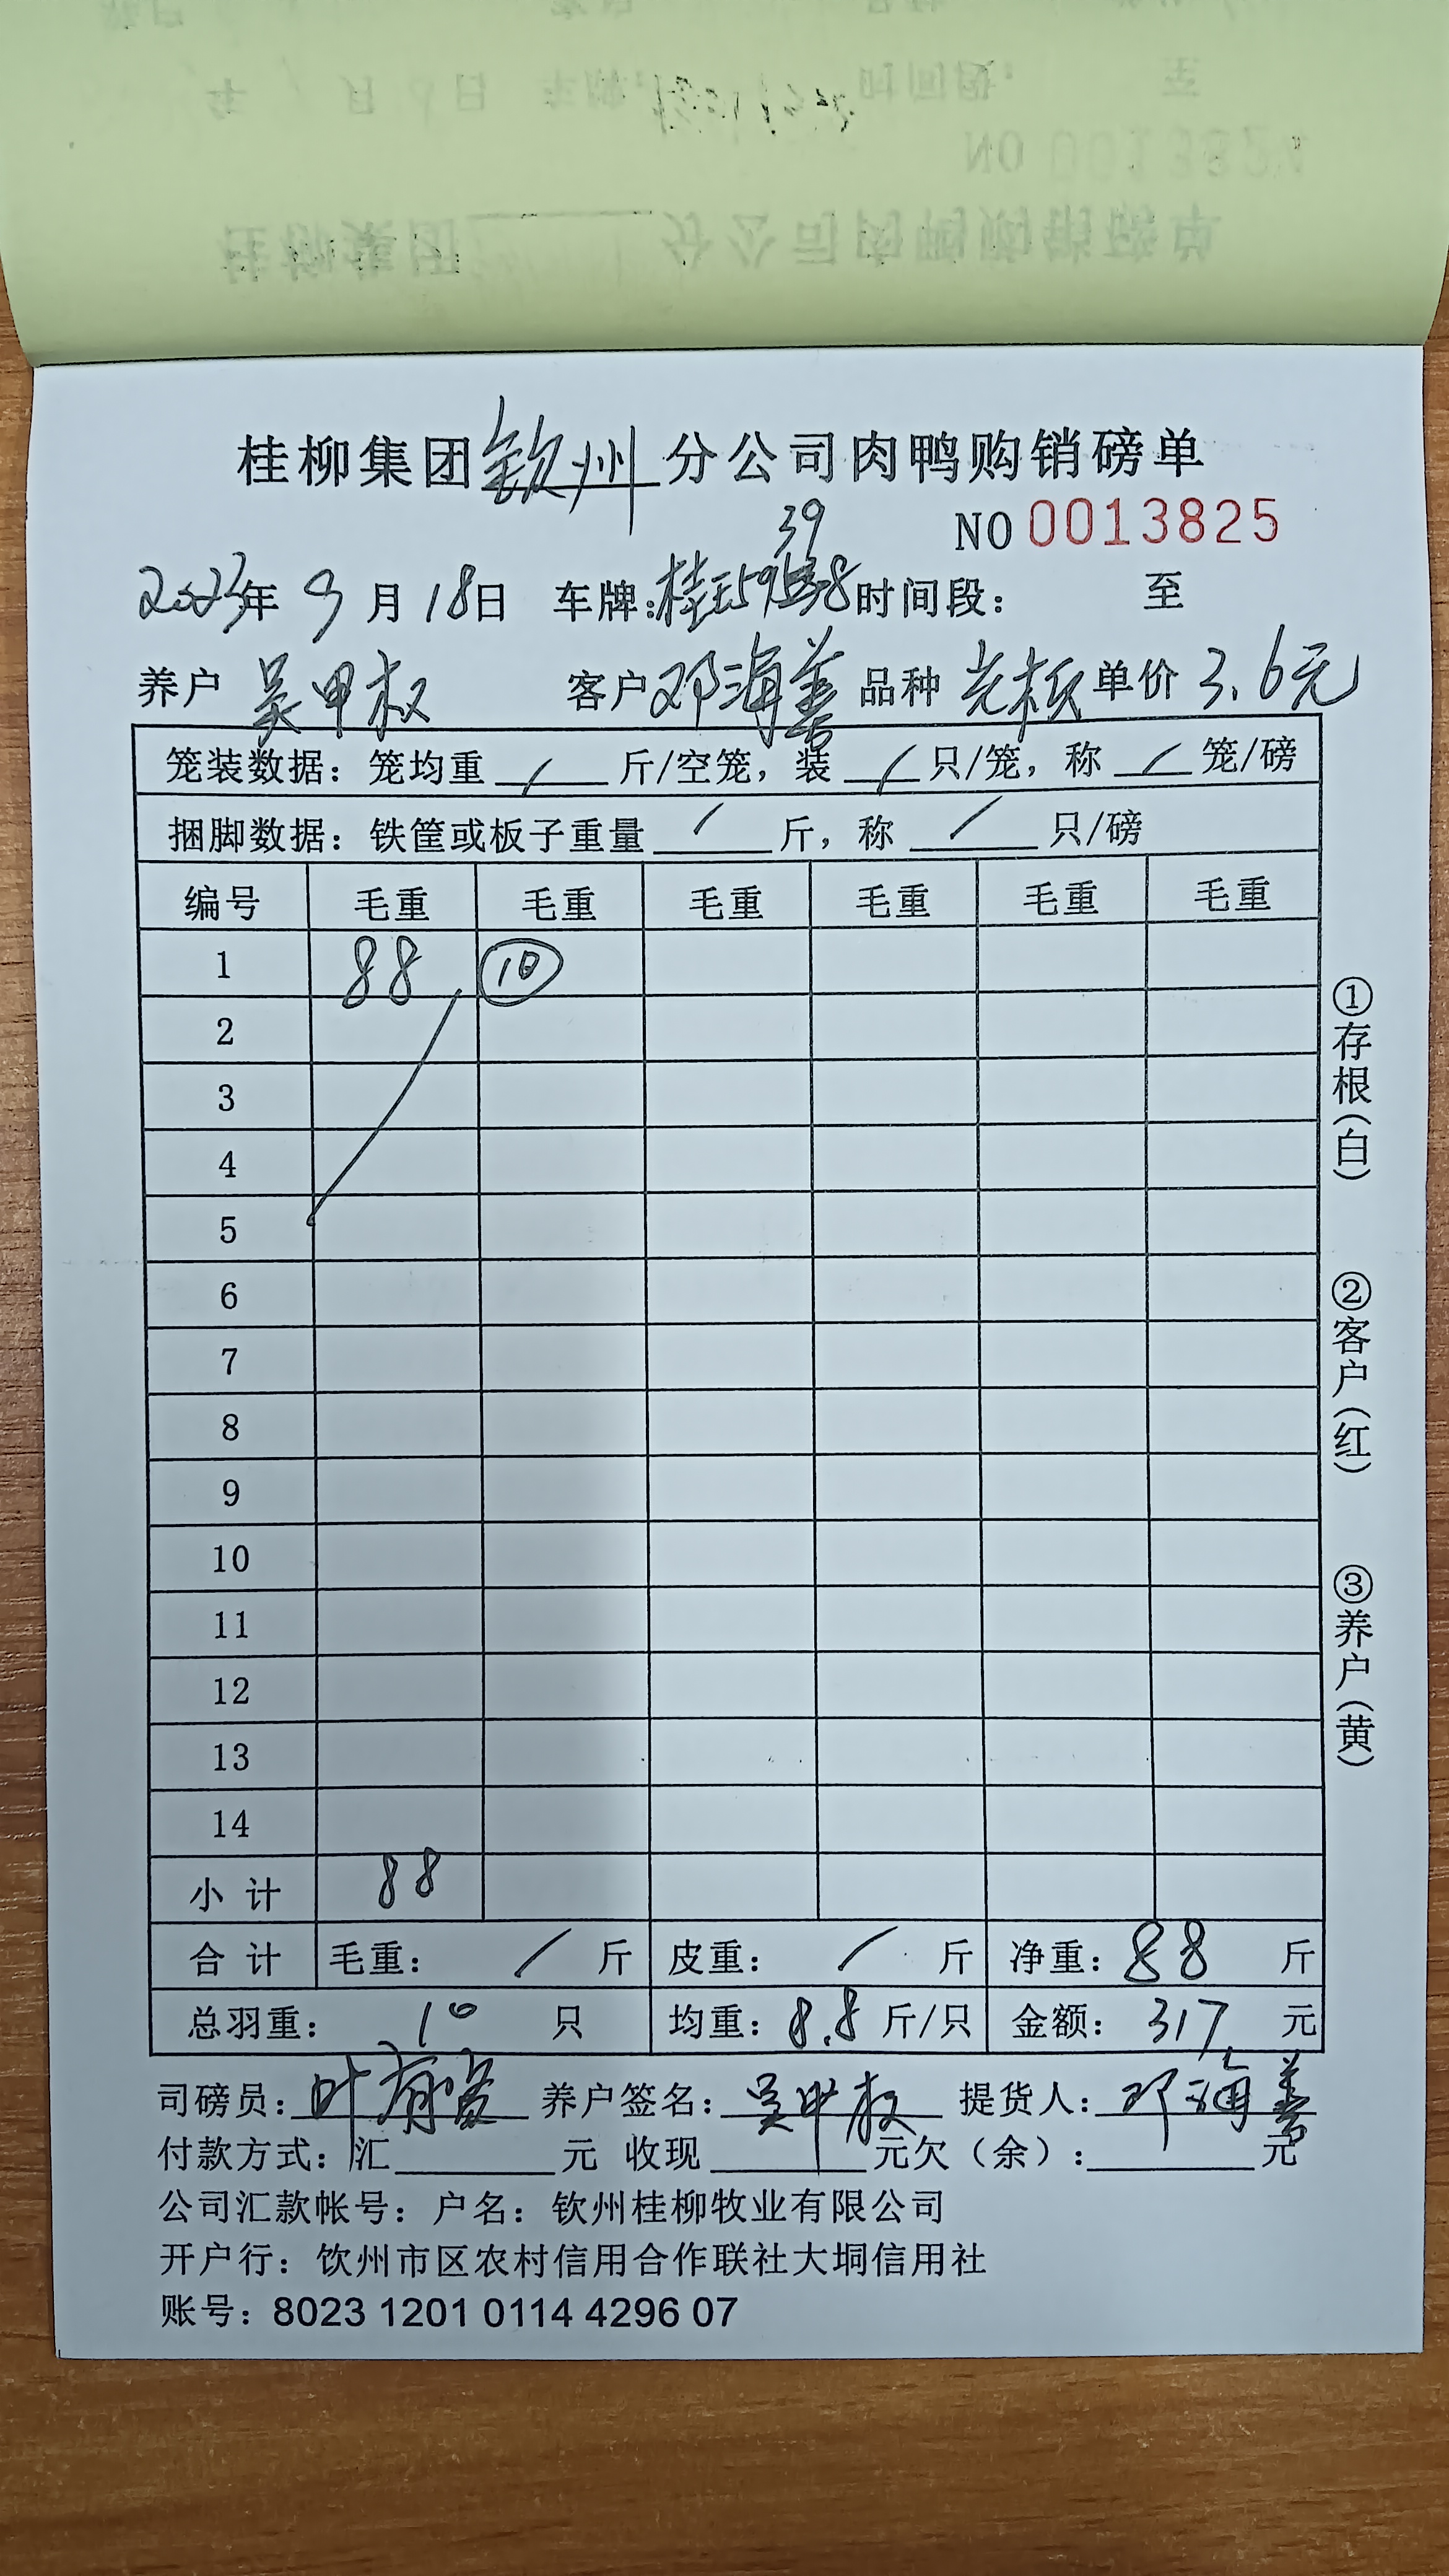 桂柳集团钦州分公司肉鸭购销磅单
NO 0013825
39
2023年 9月 18日 车牌: 时间段: 至
养户 吴甲权 客户 邓海善 品种 单价 3.6元
笼装数据: 笼均重 / 斤/空笼, 装 / 只/笼, 称 / 笼/磅
捆脚数据: 铁筐或板子重量 / 斤, 称 / 只/磅
编号 毛重 毛重 毛重 毛重 毛重 毛重
1 88 10
2
3
4
5
6
7
8
9
10
11
12
13
14
小计 88
合计 毛重: / 斤 皮重: / 斤 净重: 88 斤
总羽重: 10 只 均重: 8.8 斤/只 金额: 317 元
司磅员: 叶 养户签名: 吴甲权 提货人: 邓海善
付款方式: 汇 元 收现 元欠(余): 元
公司汇款帐号: 户名: 钦州桂柳牧业有限公司
开户行: 饮州市区农村信用合作联社大垌信用社
账号: 8023 1201 0114 4296 07
①存根(白)
②客户(红)
③养户(黄)